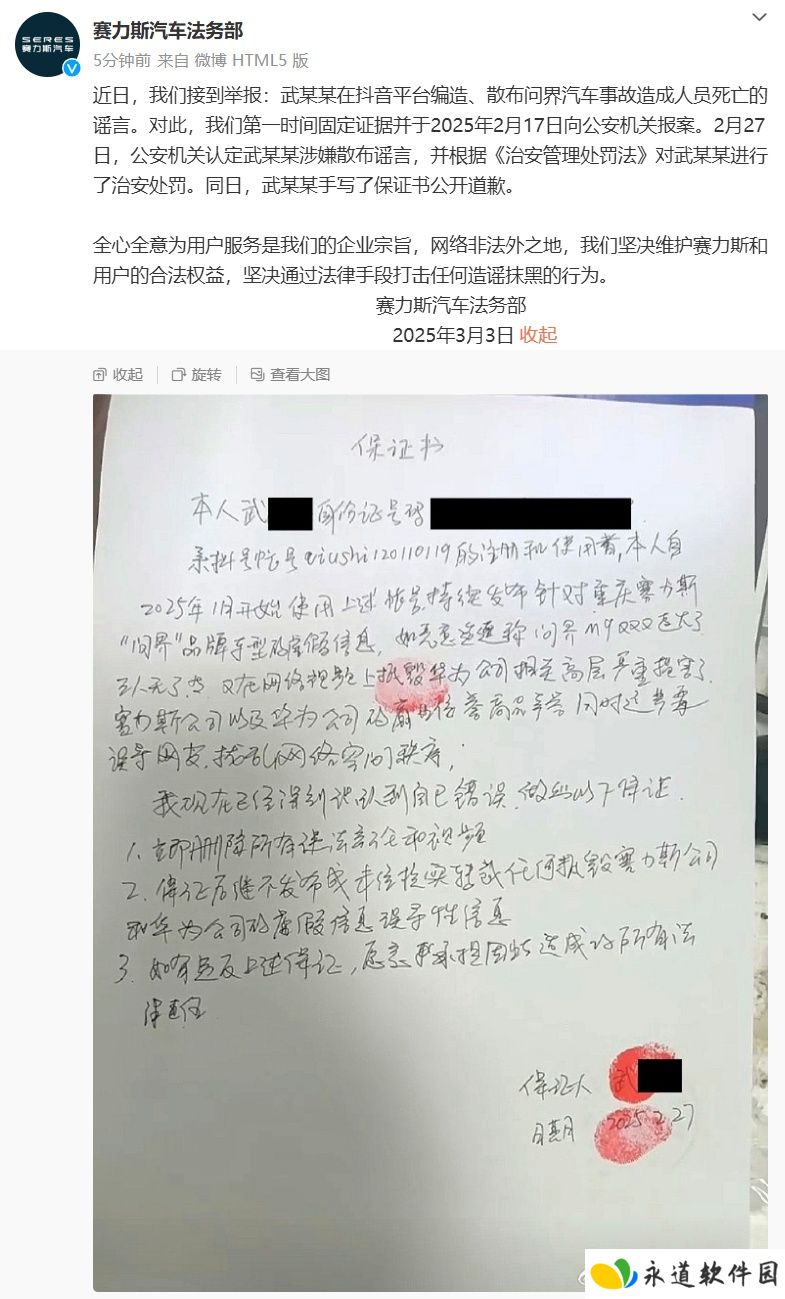 SERES
赛力斯汽车
赛力斯汽车法务部
5分钟前 来自 微博 HTML5 版
近日，我们接到举报：武某某在抖音平台编造、散布问界汽车事故造成人员死亡的
谣言。对此，我们第一时间固定证据并于2025年2月17日向公安机关报案。2月27
日，公安机关认定武某某涉嫌散布谣言，并根据《治安管理处罚法》对武某某进行
了治安处罚。同日，武某某手写了保证书公开道歉。
全心全意为用户服务是我们的企业宗旨，网络非法外之地，我们坚决维护赛力斯和
用户的合法权益，坚决通过法律手段打击任何造谣抹黑的行为。
赛力斯汽车法务部
2025年3月3日 收起
收起 旋转 查看大图
保证书
本人武 身份证号码
系抖音帐号qiushi120110119的注册和使用者,本人自
2025年1月开始使用上述帐号,持续发布针对重庆赛力斯
"问界"品牌车型的虚假信息，如恶意造谣称问界M9
三人死了 又在网络视频上抵毁华为公司相关高层严重损害了
赛力斯公司以及华为公司的商业信誉商品声誉 同时还
误导网友,扰乱网络空间秩序；
我现在已经深刻认识到自己错误,做出以下保证.
1. 立即删除所有违法言论和视频
2. 保证后继不发布或未经核实转载任何抵毁赛力斯公司
和华为公司的虚假信息误导性信息
3. 如有违反上述保证，愿意承担因此造成的所有法
律责任
保证人 武
日期 2025.2.27
永道软件园